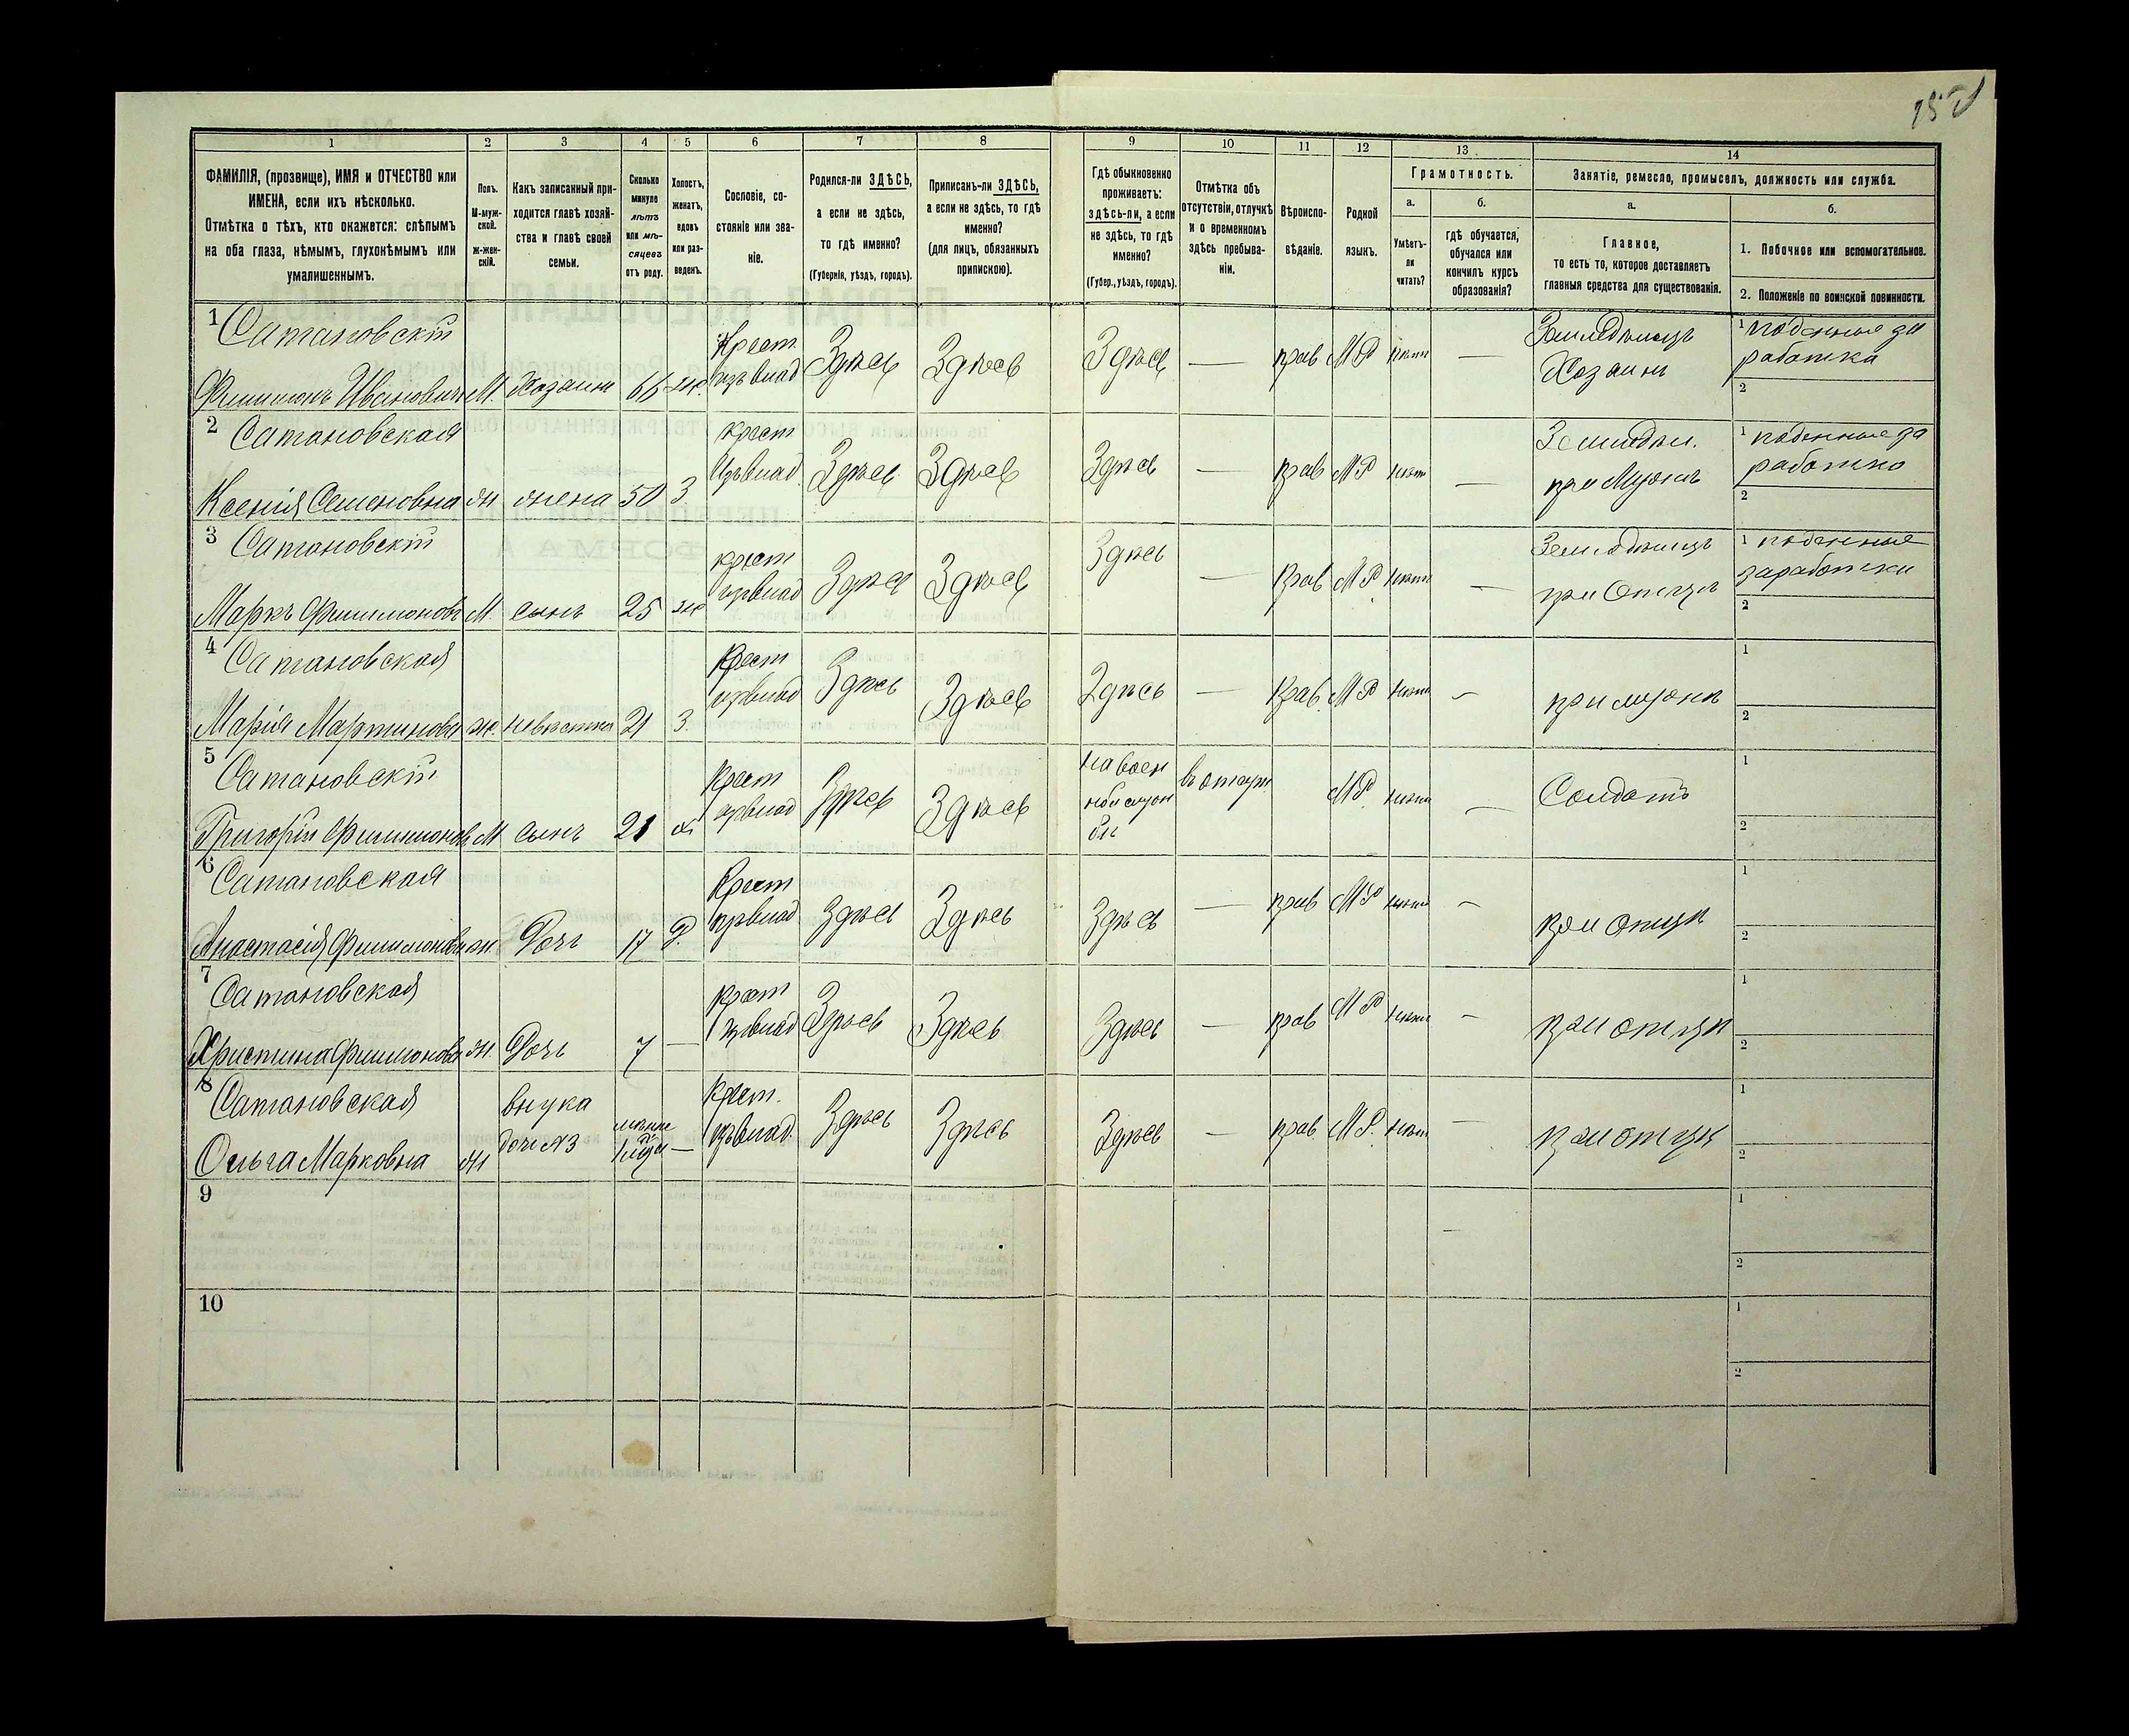 1 2 3 4 5 6 7 8 9 10 11 12 13 14
ФАМИЛІЯ, (прозвище), ИМЯ и ОТЧЕСТВО или
ИМЕНА, если ихъ нѣсколько.
Отмѣтка о тѣхъ, кто окажется: слѣпымъ
на оба глаза, нѣмымъ, глухонѣмымъ или
умалишеннымъ.
Полъ.
М-муж-
ской.
ж-жен-
скій.
Какъ записанный при-
ходится главѣ хозяй-
ства и главѣ своей
семьи.
Сколько
минуло
лѣтъ
или мѣ-
сяцевъ
отъ роду.
Холостъ,
женатъ,
вдовъ
или раз-
веденъ.
Сословіе, со-
стояніе или зва-
ніе.
Родился-ли ЗДѢСЬ,
а если не здѣсь,
то гдѣ именно?
(Губернія, уѣздъ, городъ).
Приписанъ-ли ЗДѢСЬ,
а если не здѣсь, то гдѣ
именно?
(для лицъ, обязанныхъ
припискою).
Гдѣ обыкновенно
проживаетъ:
здѣсь-ли, а если
не здѣсь, то гдѣ
именно?
(Губер., уѣздъ, городъ).
Отмѣтка объ
отсутствіи, отлучкѣ
и о временномъ
здѣсь пребыва-
ніи.
Вѣроиспо-
вѣданіе.
Родной
языкъ.
Грамотность.
а.
Умѣетъ-
ли
читать?
б.
гдѣ обучается,
обучался или
кончилъ курсъ
образованія?
Занятіе, ремесло, промыселъ, должность или служба.
а.
Главное,
то есть то, которое доставляетъ
главныя средства для существованія.
б.
1. Побочное или вспомогательное.
2. Положеніе по воинской повинности.
1 Сатановскій
Филимонъ Ивановичъ М. Хозяинъ 66 Крест. Здѣсь Здѣсь Здѣсь — прав МР нѣтъ —
Хозяинъ
1 поденные за
работка
2
2 Сатановская
Ксенія Семеновна ж жена 50 З крест Здѣсь Здѣсь Здѣсь — прав МР нѣтъ —
при Мужѣ
1 поденные за
работка
2
3 Сатановскій
Маркъ Филимоновъ М. сынъ 25 крест Здѣсь Здѣсь Здѣсь — прав МР нѣтъ —
при Отцѣ
1 поденные
заработки
2
4 Сатановская
Марія Мартинова ж. невѣстка 21 З. Крест Здѣсь Здѣсь Здѣсь — прав. МР нѣтъ —
при мужѣ
1
2
5 Сатановскій
Григорій Филимоновъ М сынъ 21 Крест Здѣсь Здѣсь МР. нѣтъ —
Солдатъ
1
2
6 Сатановская
Анастасія Филимоновна ж. Дочь 17 Крест Здѣсь Здѣсь Здѣсь — прав МР нѣтъ —
при отцѣ
1
2
7 Сатановская
Христина Филимонова ж. Дочь 7 — крест Здѣсь Здѣсь Здѣсь — прав МР нѣтъ —
при отцѣ
1
2
8 Сатановская
внука
дочь №3
Ольга Марковна ж — Крест. Здѣсь Здѣсь Здѣсь — прав МР. нѣтъ —
при отцѣ
1
2
9
1
2
10
1
2